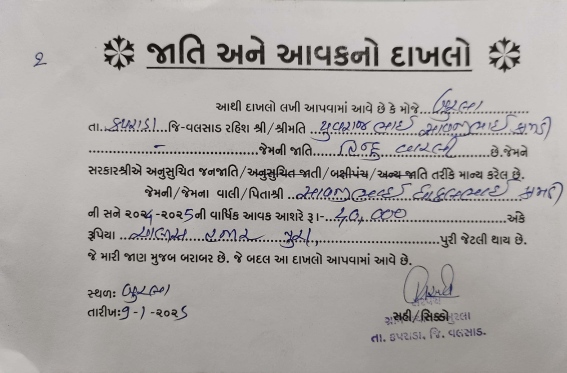 ૨
જાતિ અને આવકનો દાખલો
આથી દાખલો લખી આપવામાં આવે છે કે મોજે
તા. કપરાડા જિ-વલસાડ રહિશ શ્રી/શ્રીમતિ યુવરાજભાઈ
- જેમની જાતિ હિન્દુ વારલી છે.જેમને
સરકારશ્રીએ અનુસુચિત જનજાતિ/અનુસુચિત જાતી/બક્ષીપંચ/અન્ય જાતિ તરીકે માન્ય કરેલ છે.
જેમની/જેમના વાલી/પિતાશ્રી
ની સને ૨૦૨૪-૨૦૨૫ની વાર્ષિક આવક આશરે રૂા.- ૪૦,૦૦૦ અંકે
રૂપિયા ચાલીસ હજાર પુરા પુરી જેટલી થાય છે.
જે મારી જાણ મુજબ બરાબર છે. જે બદલ આ દાખલો આપવામાં આવે છે.
સ્થળઃ
તારીખઃ 9-1-૨૦૨૬
સરપંચ
સહી/સિક્કો
તા. કપરાડા, જિ. વલસાડ.